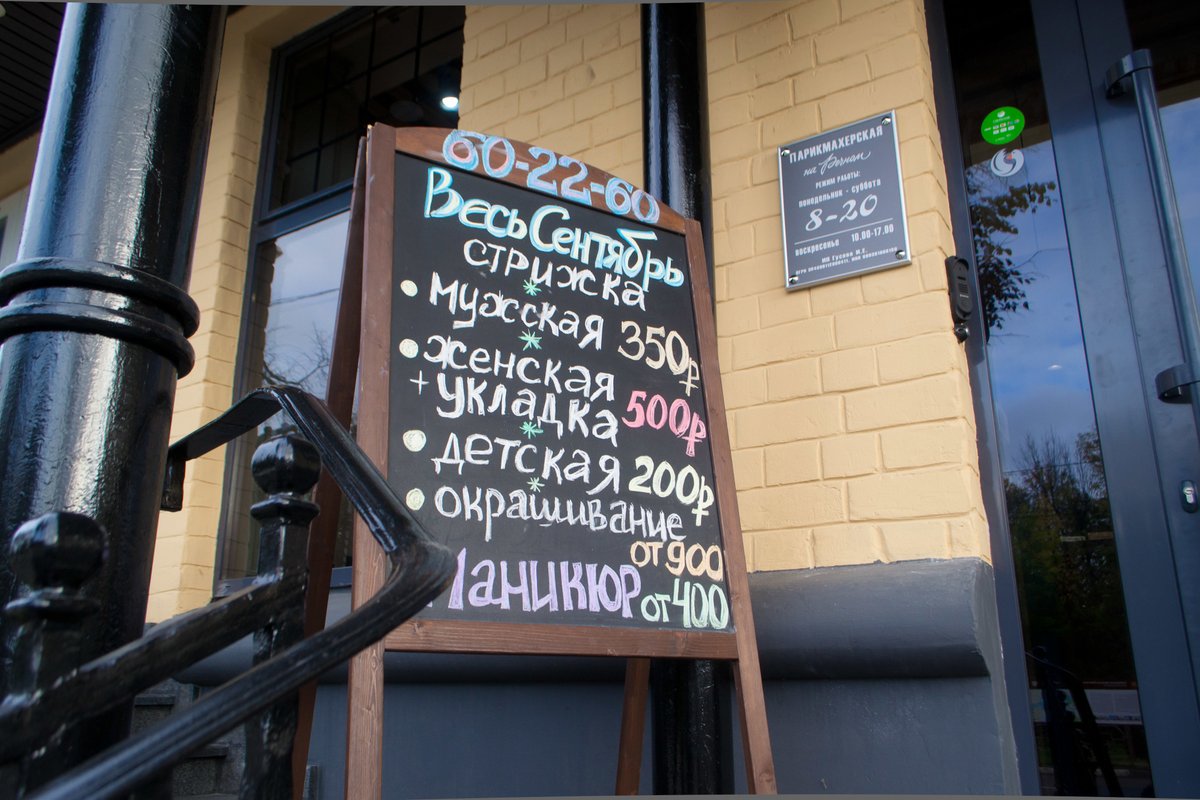 60-22-60
Весь Сентябрь
стрижка
мужская 350₽
женская
+ укладка 500₽
детская 200₽
окрашивание
от 900
Маникюр от 400
ПАРИКМАХЕРСКАЯ
на Речном
РЕЖИМ РАБОТЫ:
понедельник - суббота
8-20
воскресенье 10.00-17.00